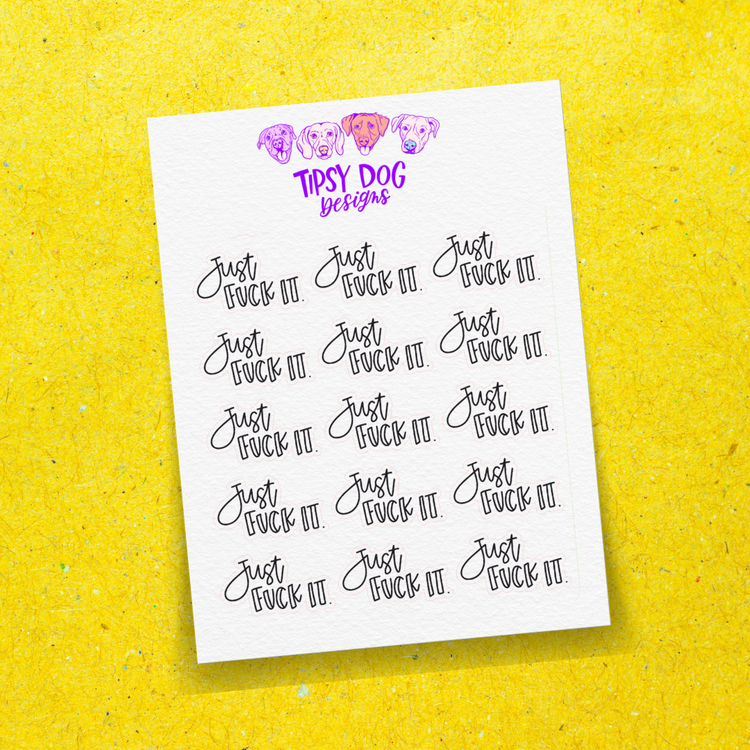 TIPSY DOG
Designs
Just Just Just
FUCK IT. FUCK IT. FUCK IT.
Just Just Just
FUCK IT. FUCK IT. FUCK IT.
Just Just Just
FUCK IT. FUCK IT. FUCK IT.
Just Just Just
FUCK IT. FUCK IT. FUCK IT.
Just Just Just
FUCK IT. FUCK IT. FUCK IT.